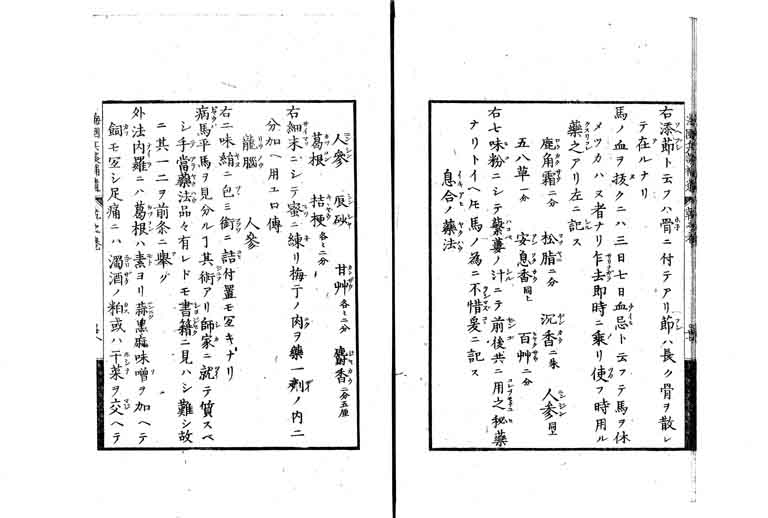 右添節ト云フハ骨ニ付テアリ節ハ長ク骨ヲ散レ
テ在ルナリ
馬ノ血ヲ抜クニハ三日七日血忌ト云フテ馬ヲ休
メツカハヌ者ナリ乍去即時ニ乗リ使フ時用ル
藥之アリ左ニ記ス
鹿角霜二分　松脂二分　沉香二朱　人参同上
五八草一分　安息香同上　百艸二分
右七味粉ニシテ蘩蔞ノ汁ニテ前後共ニ用之秘藥
ナリトイヘ𪜈馬ノ為ニ不惜爰ニ記ス
息合ノ藥法
人參　辰砂　甘艸各々二分　麝香二分五厘
葛根　桔梗各々二分
右細末ニシテ蜜ニ練リ梅干ノ肉ヲ藥一劑ノ内二
分加ヘ用エロ傳
龍腦　人參
右二味絹ニ包ミ銜ニ詰付置モ宜キナリ
病馬平馬ヲ見分ルヿ其術アリ師家ニ就テ質スベ
シ手當藥法品々有レドモ書籍ニ見ハシ難シ故
ニ其一二ヲ前条ニ舉グ
外法内羅ニハ葛根ハ素ヨリ蒜黒麻味噌ヲ加ヘテ
飼モ宜シ足痛ニハ濁酒ノ粕或ハ干菜ヲ交ヘテ